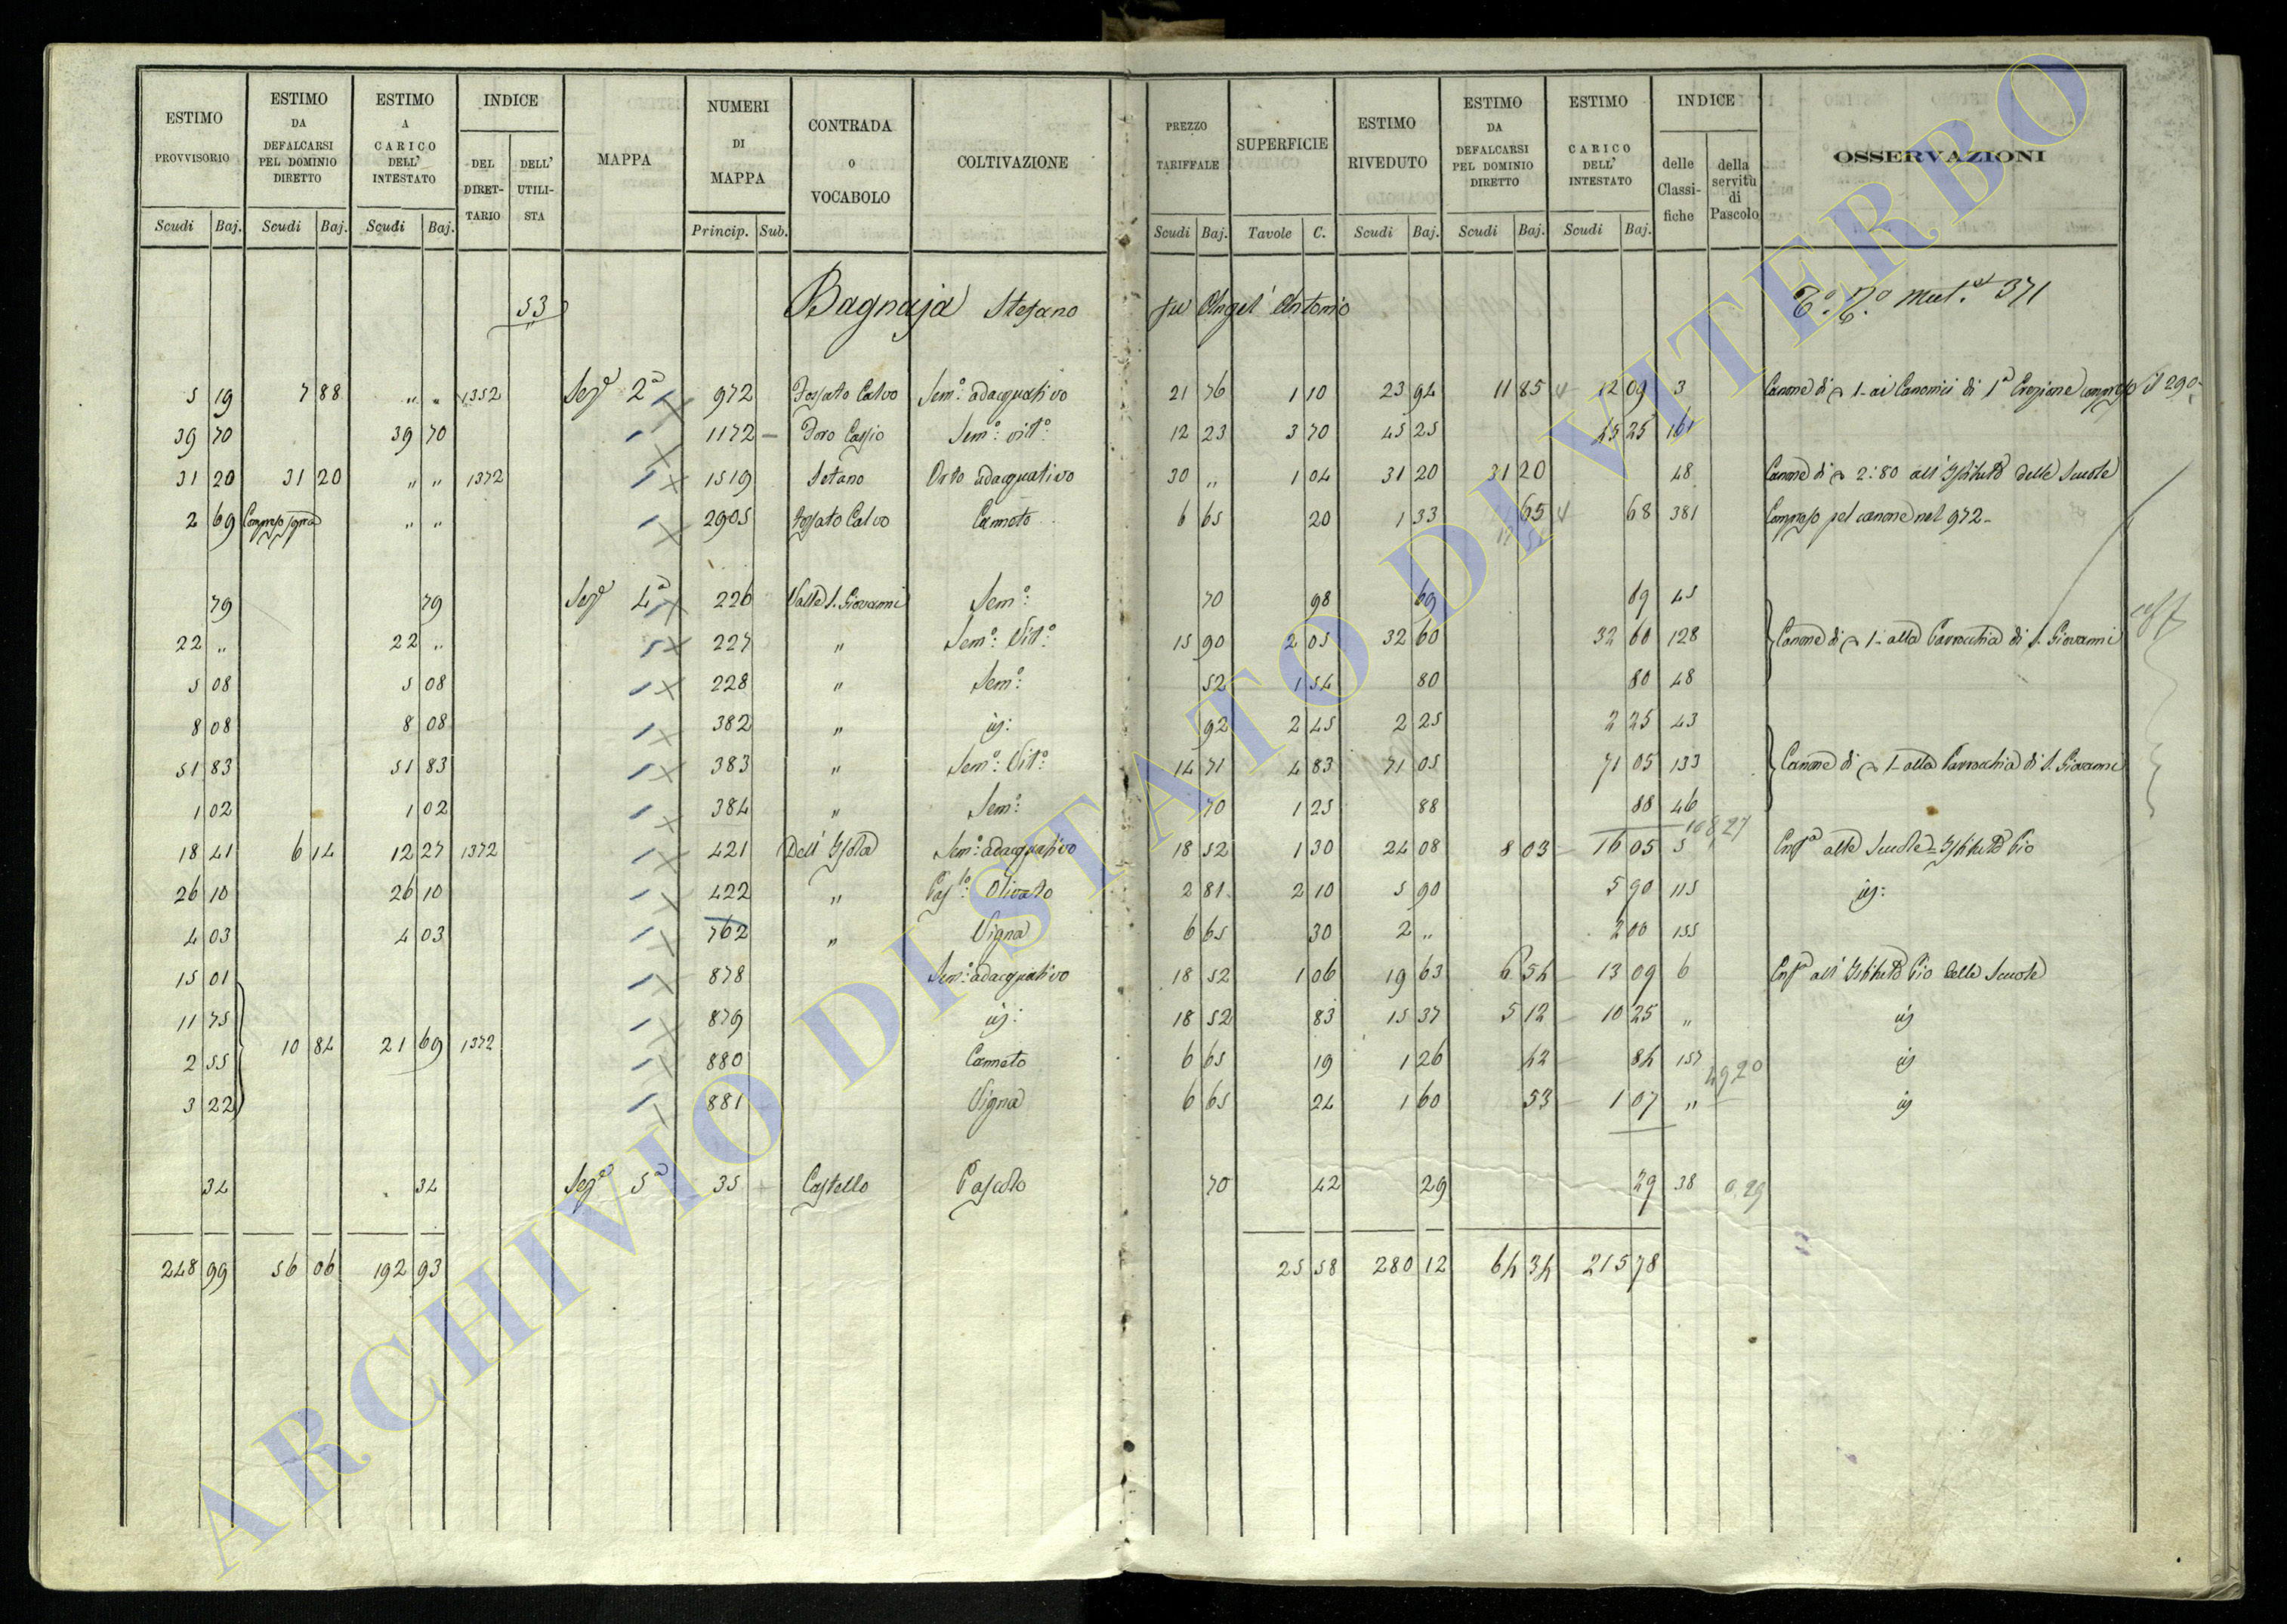 ESTIMO PROVVISORIO | ESTIMO DA DEFALCARSI PEL DOMINIO DIRETTO | ESTIMO A CARICO DELL' INTESTATO | INDICE DEL DIRETTARIO | DELL' UTILISTA | MAPPA | NUMERI DI MAPPA | CONTRADA o VOCABOLO | COLTIVAZIONE | PREZZO TARIFFALE | SUPERFICIE | ESTIMO RIVEDUTO | ESTIMO DA DEFALCARSI PEL DOMINIO DIRETTO | ESTIMO CARICO DELL' INTESTATO | INDICE delle Classifiche | della servitù di Pascolo | OSSERVAZIONI
Scudi Baj. | Scudi Baj. | Scudi Baj. | Princip. Sub. | Scudi Baj. | Tavole C. | Scudi Baj. | Scudi Baj. | Scudi Baj.
53 Bagnaja Stefano fu Angel' Antonio 371
5 19 | 7 88 | " " | 1352 | Sezᵉ 2ª | 972 | Fossato Calvo | Semº: adacquativo | 21 76 | 1 10 | 23 94 | 11 85 | 12 09 | 3 | Canone di 1- ai Canonici di 1ª Erezione compreso il 290
39 70 | 39 70 | 1172 | Foro Cassio | Semº: vitº: | 12 23 | 3 70 | 45 25 | 45 25 | 161
31 20 | 31 20 | " " | 1372 | 1519 | Setano | Orto adacquativo | 30 " | 1 04 | 31 20 | 31 20 | 48 | Canone di 2:80 all' Istituto delle Scuole
2 69 | Compreso sopra | " " | 2905 | Fossato Calvo | Canneto | 6 65 | 20 | 1 33 | 65 | 68 | 381 | Compreso pel canone nel 972-
79 | 79 | Sezᵉ 4ª | 226 | Valle S. Giovanni | Semº: | 70 | 98 | 69 | 69 | 45
22 " | 22 " | 227 | " | Semº: Vitº: | 15 90 | 2 05 | 32 60 | 32 60 | 128 | Canone di 1- alla Parrocchia di S. Giovanni
5 08 | 5 08 | 228 | " | Semº: | 52 | 1 54 | 80 | 80 | 48
8 08 | 8 08 | 382 | " | id: | 92 | 2 45 | 2 25 | 2 25 | 43
51 83 | 51 83 | 383 | " | Semº: Vitº: | 14 71 | 4 83 | 71 05 | 71 05 | 133 | Canone di 1- alla Parrocchia di S. Giovanni
1 02 | 1 02 | 384 | " | Semº: | 70 | 1 25 | 88 | 88 | 46
18 41 | 6 14 | 12 27 | 1372 | 421 | Dell' Isola | Semº: adacquativo | 18 52 | 1 30 | 24 08 | 8 03 | 16 05 | 5 | Enfª alle Scuole - Istituto Pio
26 10 | 26 10 | 422 | " | Pasᵗᵒ: Olivato | 2 81 | 2 10 | 5 90 | 5 90 | 115 | id:
4 03 | 4 03 | 762 | " | Vigna | 6 65 | 30 | 2 " | 2 00 | 155
15 01 | 878 | Semº: adacquativo | 18 52 | 1 06 | 19 63 | 6 54 | 13 09 | 6 | Enfª all' Istituto Pio delle Scuole
11 75 | 879 | id: | 18 52 | 83 | 15 37 | 5 12 | 10 25 | " | id
2 55 | 10 84 | 21 69 | 1372 | 880 | Canneto | 6 65 | 19 | 1 26 | 42 | 84 | 157 | 49 20 | id
3 22 | 881 | Vigna | 6 65 | 24 | 1 60 | 53 | 1 07 | " | id
34 | 34 | Sezᵉ 5ª | 35 | Castello | Pascolo | 70 | 42 | 29 | 29 | 38 | 0,29
248 99 | 56 06 | 192 93 | 25 58 | 280 12 | 64 34 | 215 78
ARCHIVIO DI STATO DI VITERBO